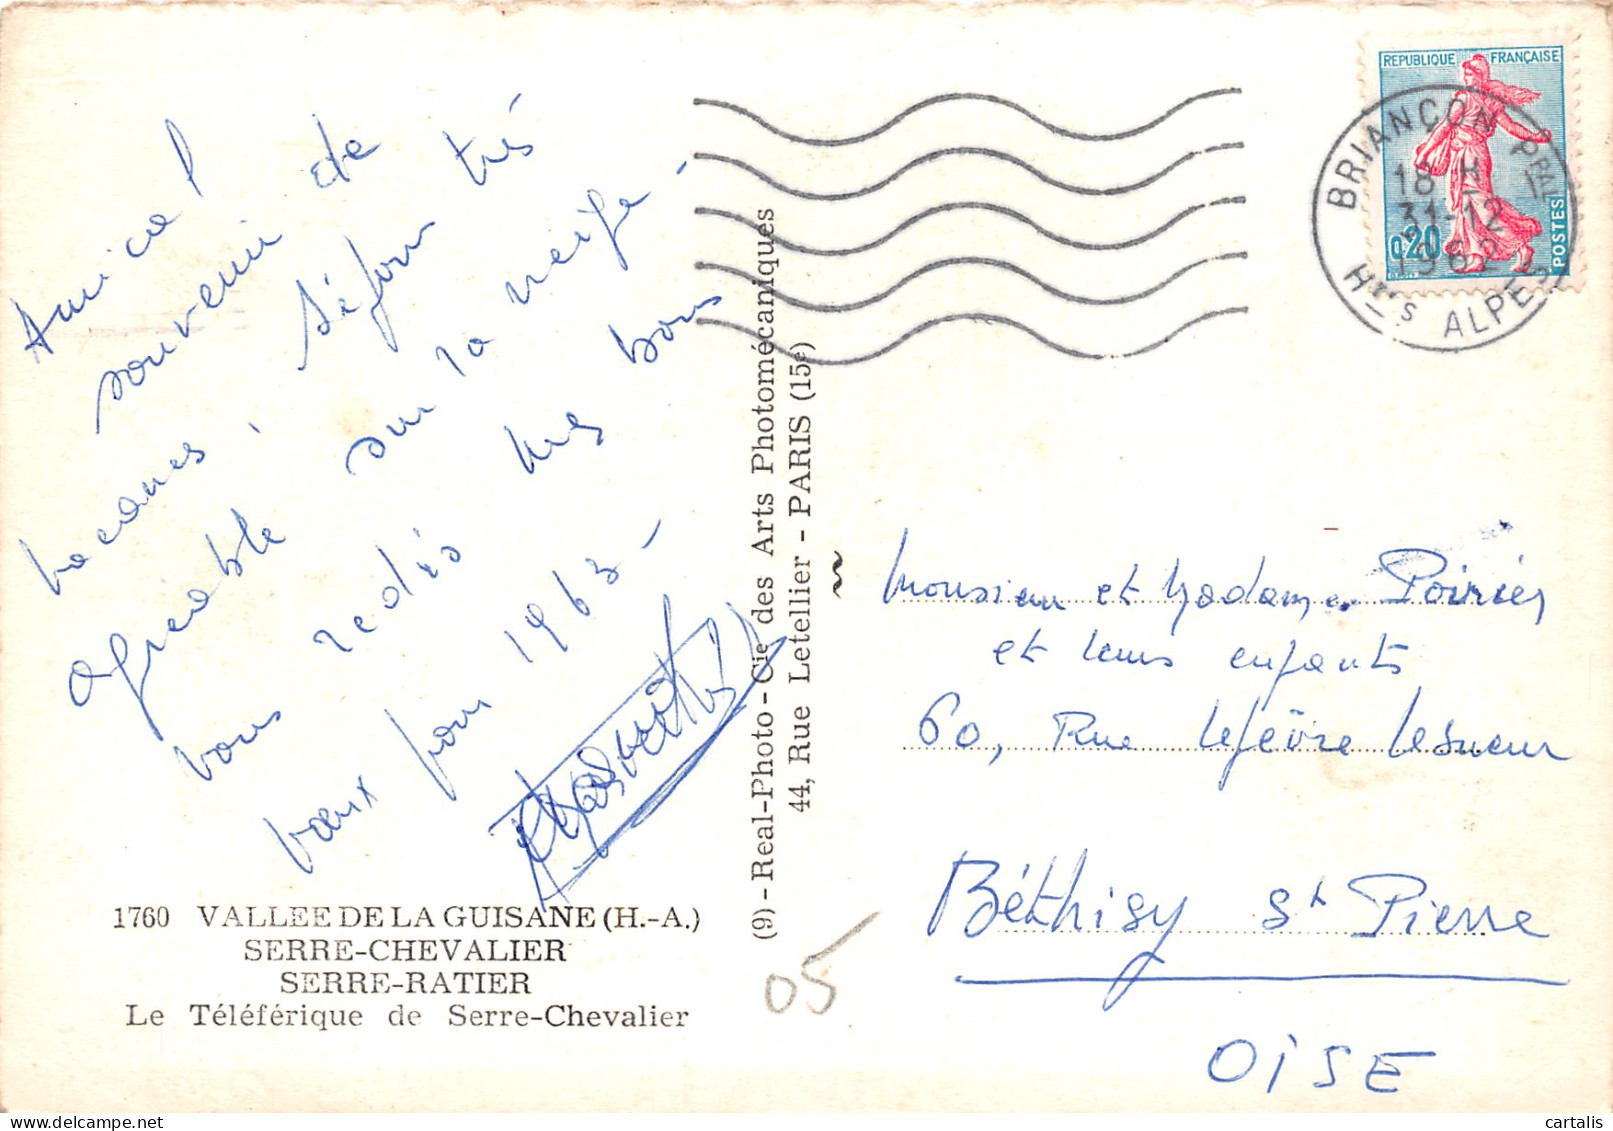 Amical
souvenir de
vacances, séjour très
agréable sur la neige -
vous redis mes bons
vœux pour 1963 -
1760 VALLEE DE LA GUISANE (H.-A.)
SERRE-CHEVALIER
SERRE-RATIER
Le Téléférique de Serre-Chevalier
(9) - Real-Photo - Cie des Arts Photomécaniques
44, Rue Letellier - PARIS (15e)
05
REPUBLIQUE FRANÇAISE
0,20
POSTES
BRIANÇON PPAL
18 H
31-12
1962
Htes ALPES
Monsieur et Madame Poirier
et leurs enfants
60, Rue Lefèvre Lesueur
Béthisy St Pierre
OISE
cartalis